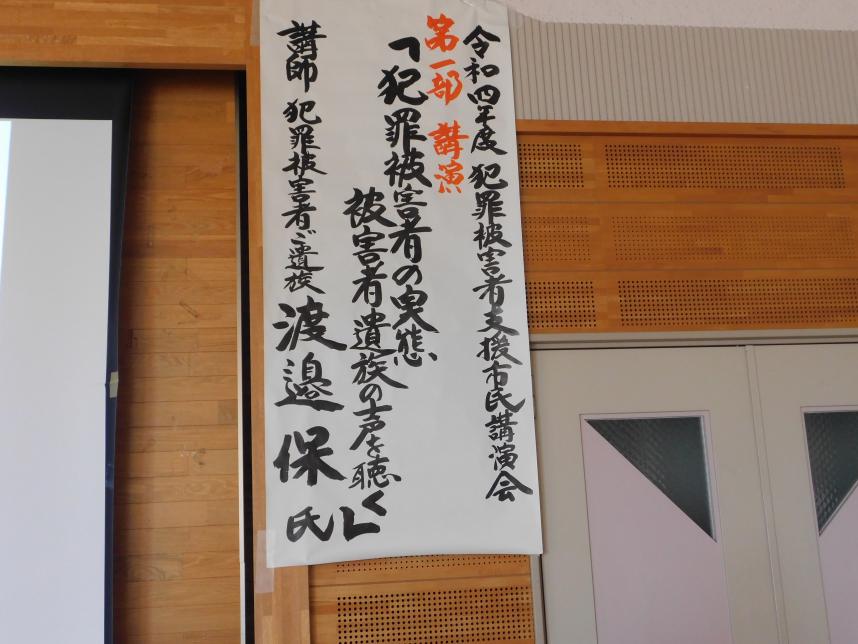 令和四年度 犯罪被害者支援市民講演会
第一部 講演
「犯罪被害者の実態
被害者遺族の声を聴く」
講師 犯罪被害者ご遺族 渡邉保氏